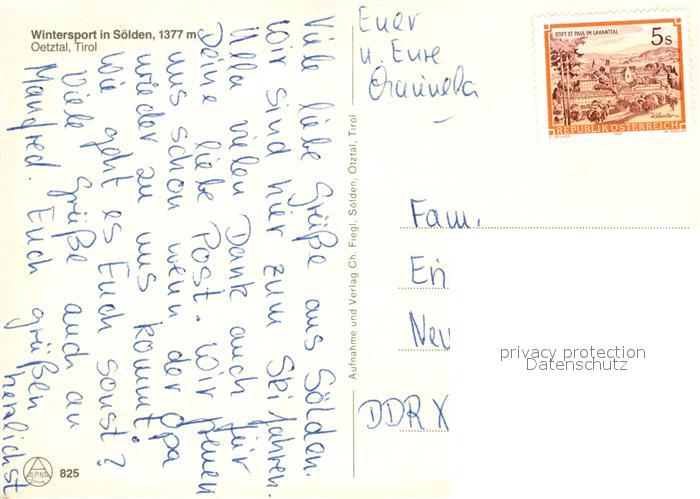 Wintersport in Sölden, 1377 m
Oetztal, Tirol
Viele liebe Grüße aus Sölden.
Wir sind hier zum Skifahren.
Ulla vielen Dank auch für
Deine liebe Post. Wir freuen
uns schon wenn der Opa
wieder zu uns kommt.
Wie geht es Euch sonst?
Viele Grüße auch an
Manfred. Euch grüßen
herzlichst
Euer
u. Eure
Aufnahme und Verlag Ch. Fiegl, Sölden, Ötztal, Tirol
STIFT ST. PAUL IM LAVANTTAL
5 S
Kärnten
REPUBLIK ÖSTERREICH
Fam.
Eri
Neu
DDR X
privacy protection
Datenschutz
ALPINA
825